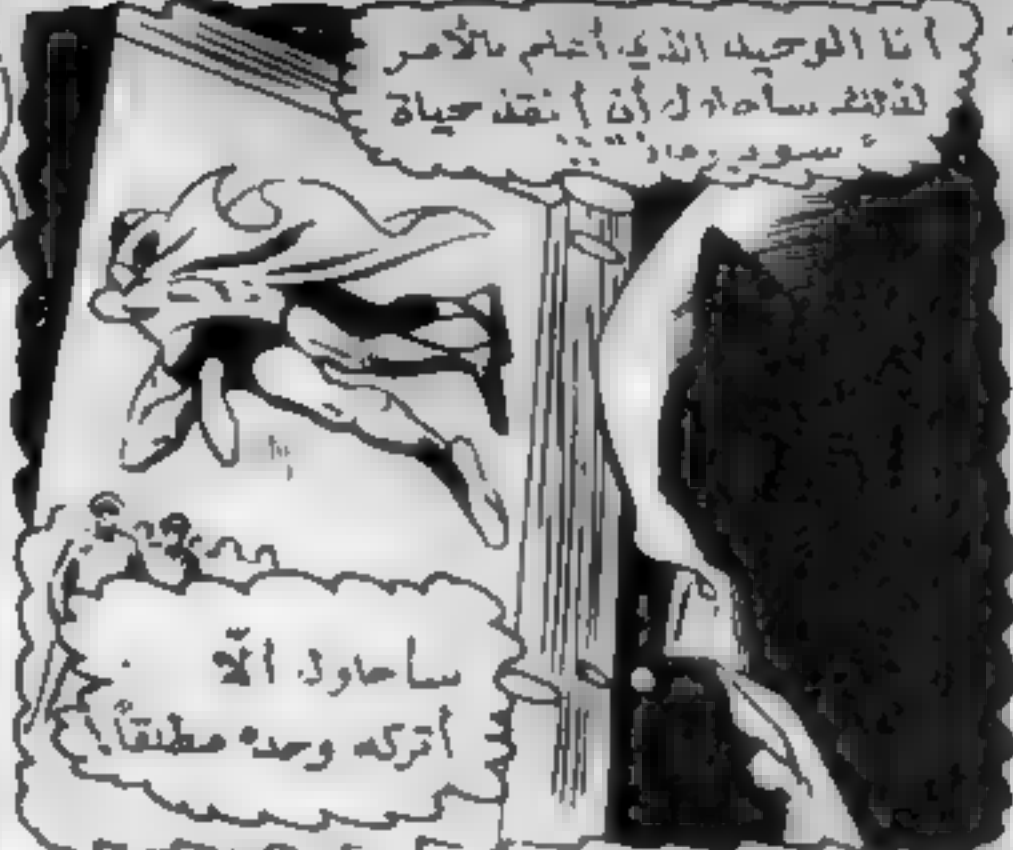 أنا الوحيد الذي أعلم بالأمر
لذلك سأحاول أن أنقذ حياة
سوبرمان
سأحاول ألاّ
أتركه وحده مطلقاً